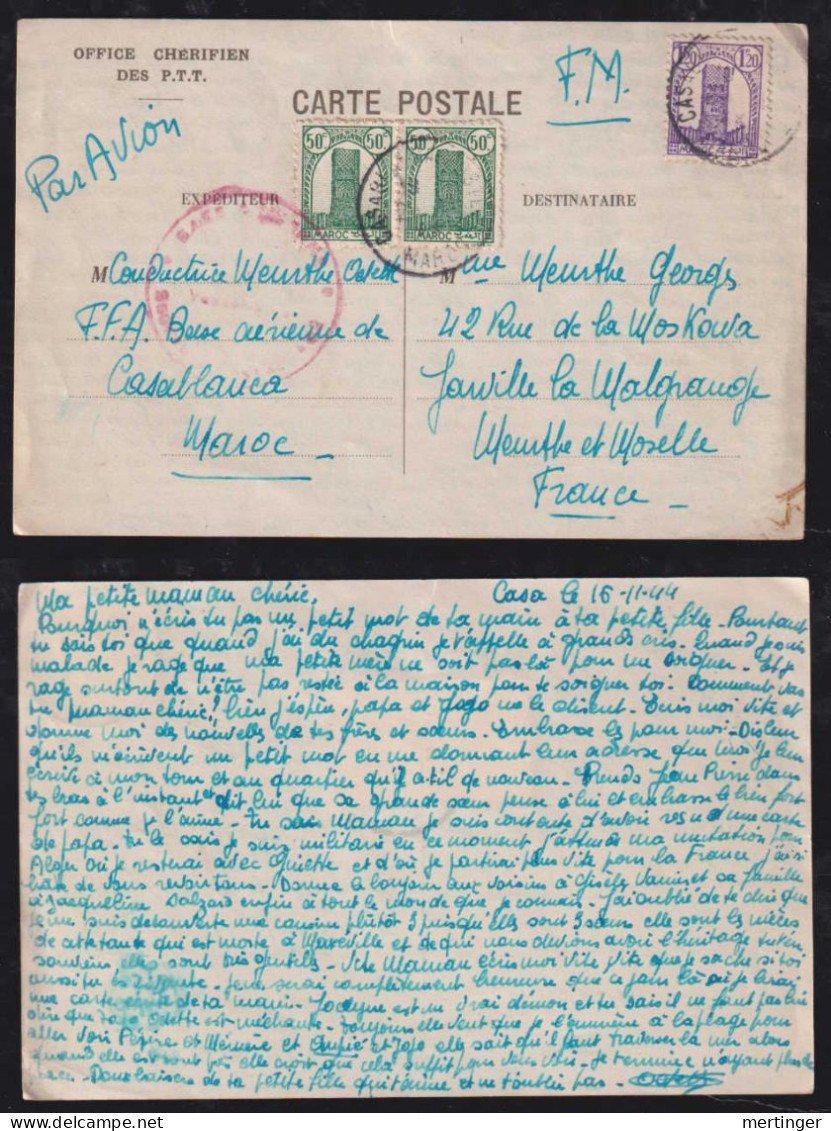 OFFICE CHÉRIFIEN
DES P.T.T.
CARTE POSTALE
F.M.
1.20
Par Avion
50c 50c
MAROC MAROC
EXPÉDITEUR
DESTINATAIRE
M Conductrice Meurthe Odette
Mme Meurthe Georges
F.F.A. Base aérienne de
42 Rue de la Moskowa
Casablanca
Jarville la Malgrange
Maroc
Meurthe et Moselle
France
Ma petite maman chérie, Casa le 16-11-44
Pourquoi n'écris tu pas un petit mot de ta main à ta petite fille - Pourtant
tu sais toi que quand j'ai du chagrin je t'appelle à grands cris. Quand je suis
malade je rage que ma petite mère ne soit pas là pour me soigner - Et je
rage surtout de n'être pas restée à la maison pour te soigner toi. Comment vas
tu maman chérie, bien j'espère, papa et Jojo me le disent. Ecris moi vite et
donne moi des nouvelles de tes frères et soeurs. Embrasse les pour moi - Dis leur
qu'ils m'écrivent un petit mot en me donnant leur adresse que moi je leur
écrive à mon tour et au quartier qu'y a t-il de nouveau - Prends Jean Pierre dans
tes bras à l'instant et dit lui que sa grande soeur pense à lui et embrasse le bien fort
fort comme je l'aime - tu sais Maman je suis contente d'avoir reçu une carte
de papa - Tu le sais je suis militaire en ce moment j'attends ma mutation pour
Alger où je resterai avec Guiette et d'où je partirai plus vite pour la France j'ai si
hate de vous revoir tous - Donne le bonjour aux voisins à Gisèle et sa famille
à Jacqueline enfin à tout le monde que je connais - J'ai oublié de te dire que
je me suis découverte une cousine plutôt 3 puisqu'elles sont 3 soeurs elle sont les nièces
de ta tante qui est morte à Maxeville et de qui nous devions avoir l'héritage tu t'en
souviens elles sont très gentilles - Vite Maman écris moi vite vite que je sache si toi
aussi tu es - Je serai complètement heureuse que ce jour là où je lirai
une carte de ta main - Jocelyne est un vrai démon et tu sais il ne faut pas lui
dire que tata Odette est méchante - Toujours elle veut que je l'emmène à la plage pour
aller voir Pépère et Mémère et et Jojo elle sait qu'il faut traverser la mer alors
quand elle est elle croit que cela suffit pour vous voir - Je termine n'ayant plus de
place - Doux baisers de ta petite fille qui t'aime et ne t'oublie pas - Odette
mertinger